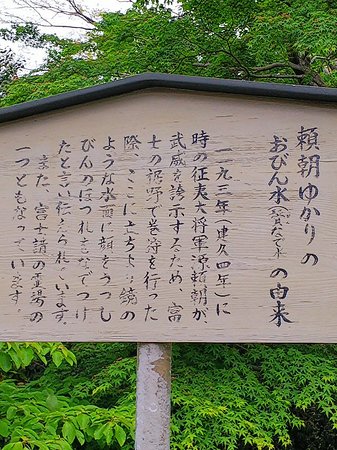 頼朝ゆかりの
おびん水(鬢なで水)の由来
一一九三年(建久四年)に
時の征夷大将軍源頼朝が、
武威を誇示するため、富
士の裾野で巻狩を行った
際、ここに立ちよ、鏡の
ような水面に顔をうつし
びんのほつれをなでつけ
たと言い伝えられています。
また、富士講の霊場の
一つともなっています。